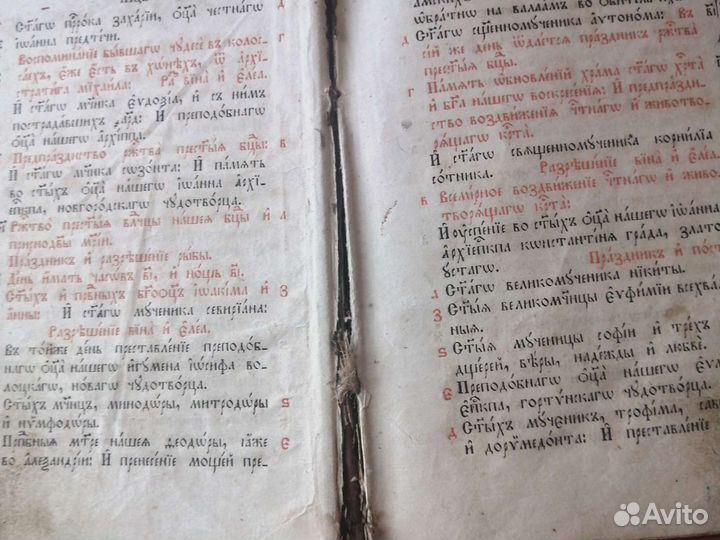 Ст҃агѡ пр҇о́рока Заха́рїи, ѻ҆ц҃а̀ че́стнагѡ
і҆ѡа́нна предте́чи.
Воспомина́нїе бы́вшагѡ чꙋдесѐ въ коло́с-
са́ехъ, є҆́же є҆́сть въ хѡ́нѣхъ, ѿ а҆рхї-
страти́га мїхаи́ла: Ра҇з вїна̀ и҆ є҆ле́а.
И҆ ст҃а́гѡ мч҃ика є҆ѵдо́ѯїа, и҆ съ ни́мъ
пострада́вшихъ ҂а҃рд: И҆ преподо́бнагѡ
ѻ҆ц҃а̀ на́шегѡ а҆рхі́ппа.
Предпра́зднство рж҇тва̀ прест҃ы́ѧ бц҃ы: в
И҆ ст҃а́гѡ мч҃ика сѡ́зонта: И҆ па́мѧть
во ст҃ы́хъ ѻ҆ц҃а̀ на́шегѡ і҆ѡа́нна а҆рхїе-
п҇кпа, новгоро́дскагѡ чꙋдотво́рца.
Рж҇тво̀ прест҃ы́ѧ влч҇цы на́шеѧ бц҃ы и҆ а
приснодв҃ы мр҃і́и.
Пра́здникъ и҆ разрѣше́нїе ры́бы.
де́нь и҆́мать часѡ́въ в҃і, и҆ но́щь в҃і.
Ст҃ы́хъ и҆ првⷣныхъ бг҃оѻц҃ъ і҆ѡакі́ма и҆ з
а҆́нны: И҆ ст҃а́гѡ мч҃еника севирїа́на:
Разрѣше́нїе вїна̀ и҆ є҆ле́а.
Въ то́йже де́нь преставле́нїе преподо́б-
нагѡ ѻ҆ц҃а̀ на́шегѡ и҆гꙋ́мена і҆ѡ́сифа во-
ло́цкагѡ, но́вагѡ чꙋдотво́рца.
Ст҃ы́хъ мч҃ицъ, минодѡ́ры, митродѡ́ры ѕ
и҆ нѷмфодѡ́ры.
Прп҇бныѧ мт҃ре на́шеѧ ѳеодѡ́ры, ꙗ҆́же є
во а҆леѯандрі́и: И҆ пренесе́нїе моще́й пре-
ѡ҆брати́ѡ на валаа́мъ во ѻ҆би́тель
Ст҃а́гѡ сщ҃енномч҃еника а҆ѵтоно́ма: Въ в҃і
д се́й же де́нь ѿдае́тсѧ пра́здникъ рж҇тва̀
прест҃ы́ѧ бц҃ы.
г Па́мѧть ѡ҆бновле́нїѧ хра́ма ст҃а́гѡ хр҇та̀
и҆ бг҃а на́шегѡ воскресе́нїѧ: И҆ предпра́зд-
ство воздви́женїѧ чт҇на́гѡ и҆ животво-
рѧ́щагѡ кр҇та̀.
И҆ ст҃а́гѡ сщ҃енномꙋ́ченика корни́лїа
со́тника. Разрѣше́нїе вїна̀ и҆ є҆ле́а.
в Всемі́рное воздви́женїе чт҇на́гѡ и҆ живо-
творѧ́щагѡ кр҇та̀:
И҆ ᲂу҆спе́нїе во ст҃ы́хъ ѻ҆ц҃а̀ на́шегѡ і҆ѡа́нна
а҆рхїеп҇кпа кѡнстанті́нѧ гра́да, злато-
ᲂу҆́стагѡ. Пра́здникъ и҆ по́ст
а Ст҃а́гѡ великомч҃еника ники́ты.
з Ст҃ы́ѧ великомч҃ицы є҆ѵфи́мїи всехва́л
ныѧ.
ѕ Ст҃ы́ѧ мꙋ́ченицы софі́и и҆ тре́хъ
дще́рей, вѣ́ры, наде́жды и҆ любвѐ.
є Преподо́бнагѡ ѻ҆ц҃а̀ на́шегѡ є҆ѵ
є҆п҇кпа, горту́нскагѡ чꙋдотво́рца.
д Ст҃ы́хъ мꙋ́ченикъ, трофі́ма, сав
и҆ дорѷмедо́нта: И҆ преставле́нїе
Avito